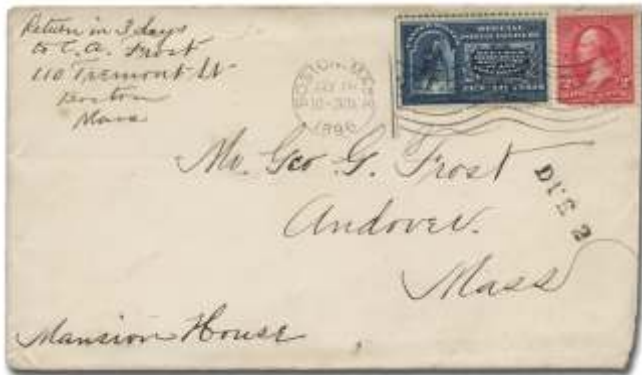 Return in 3 days
to C. A. Frost
110 Tremont St
Boston
Mass
BOSTON, MASS
1896
Mr. Geo G. Frost
Andover.
Mass
DUE 2
Mansion House